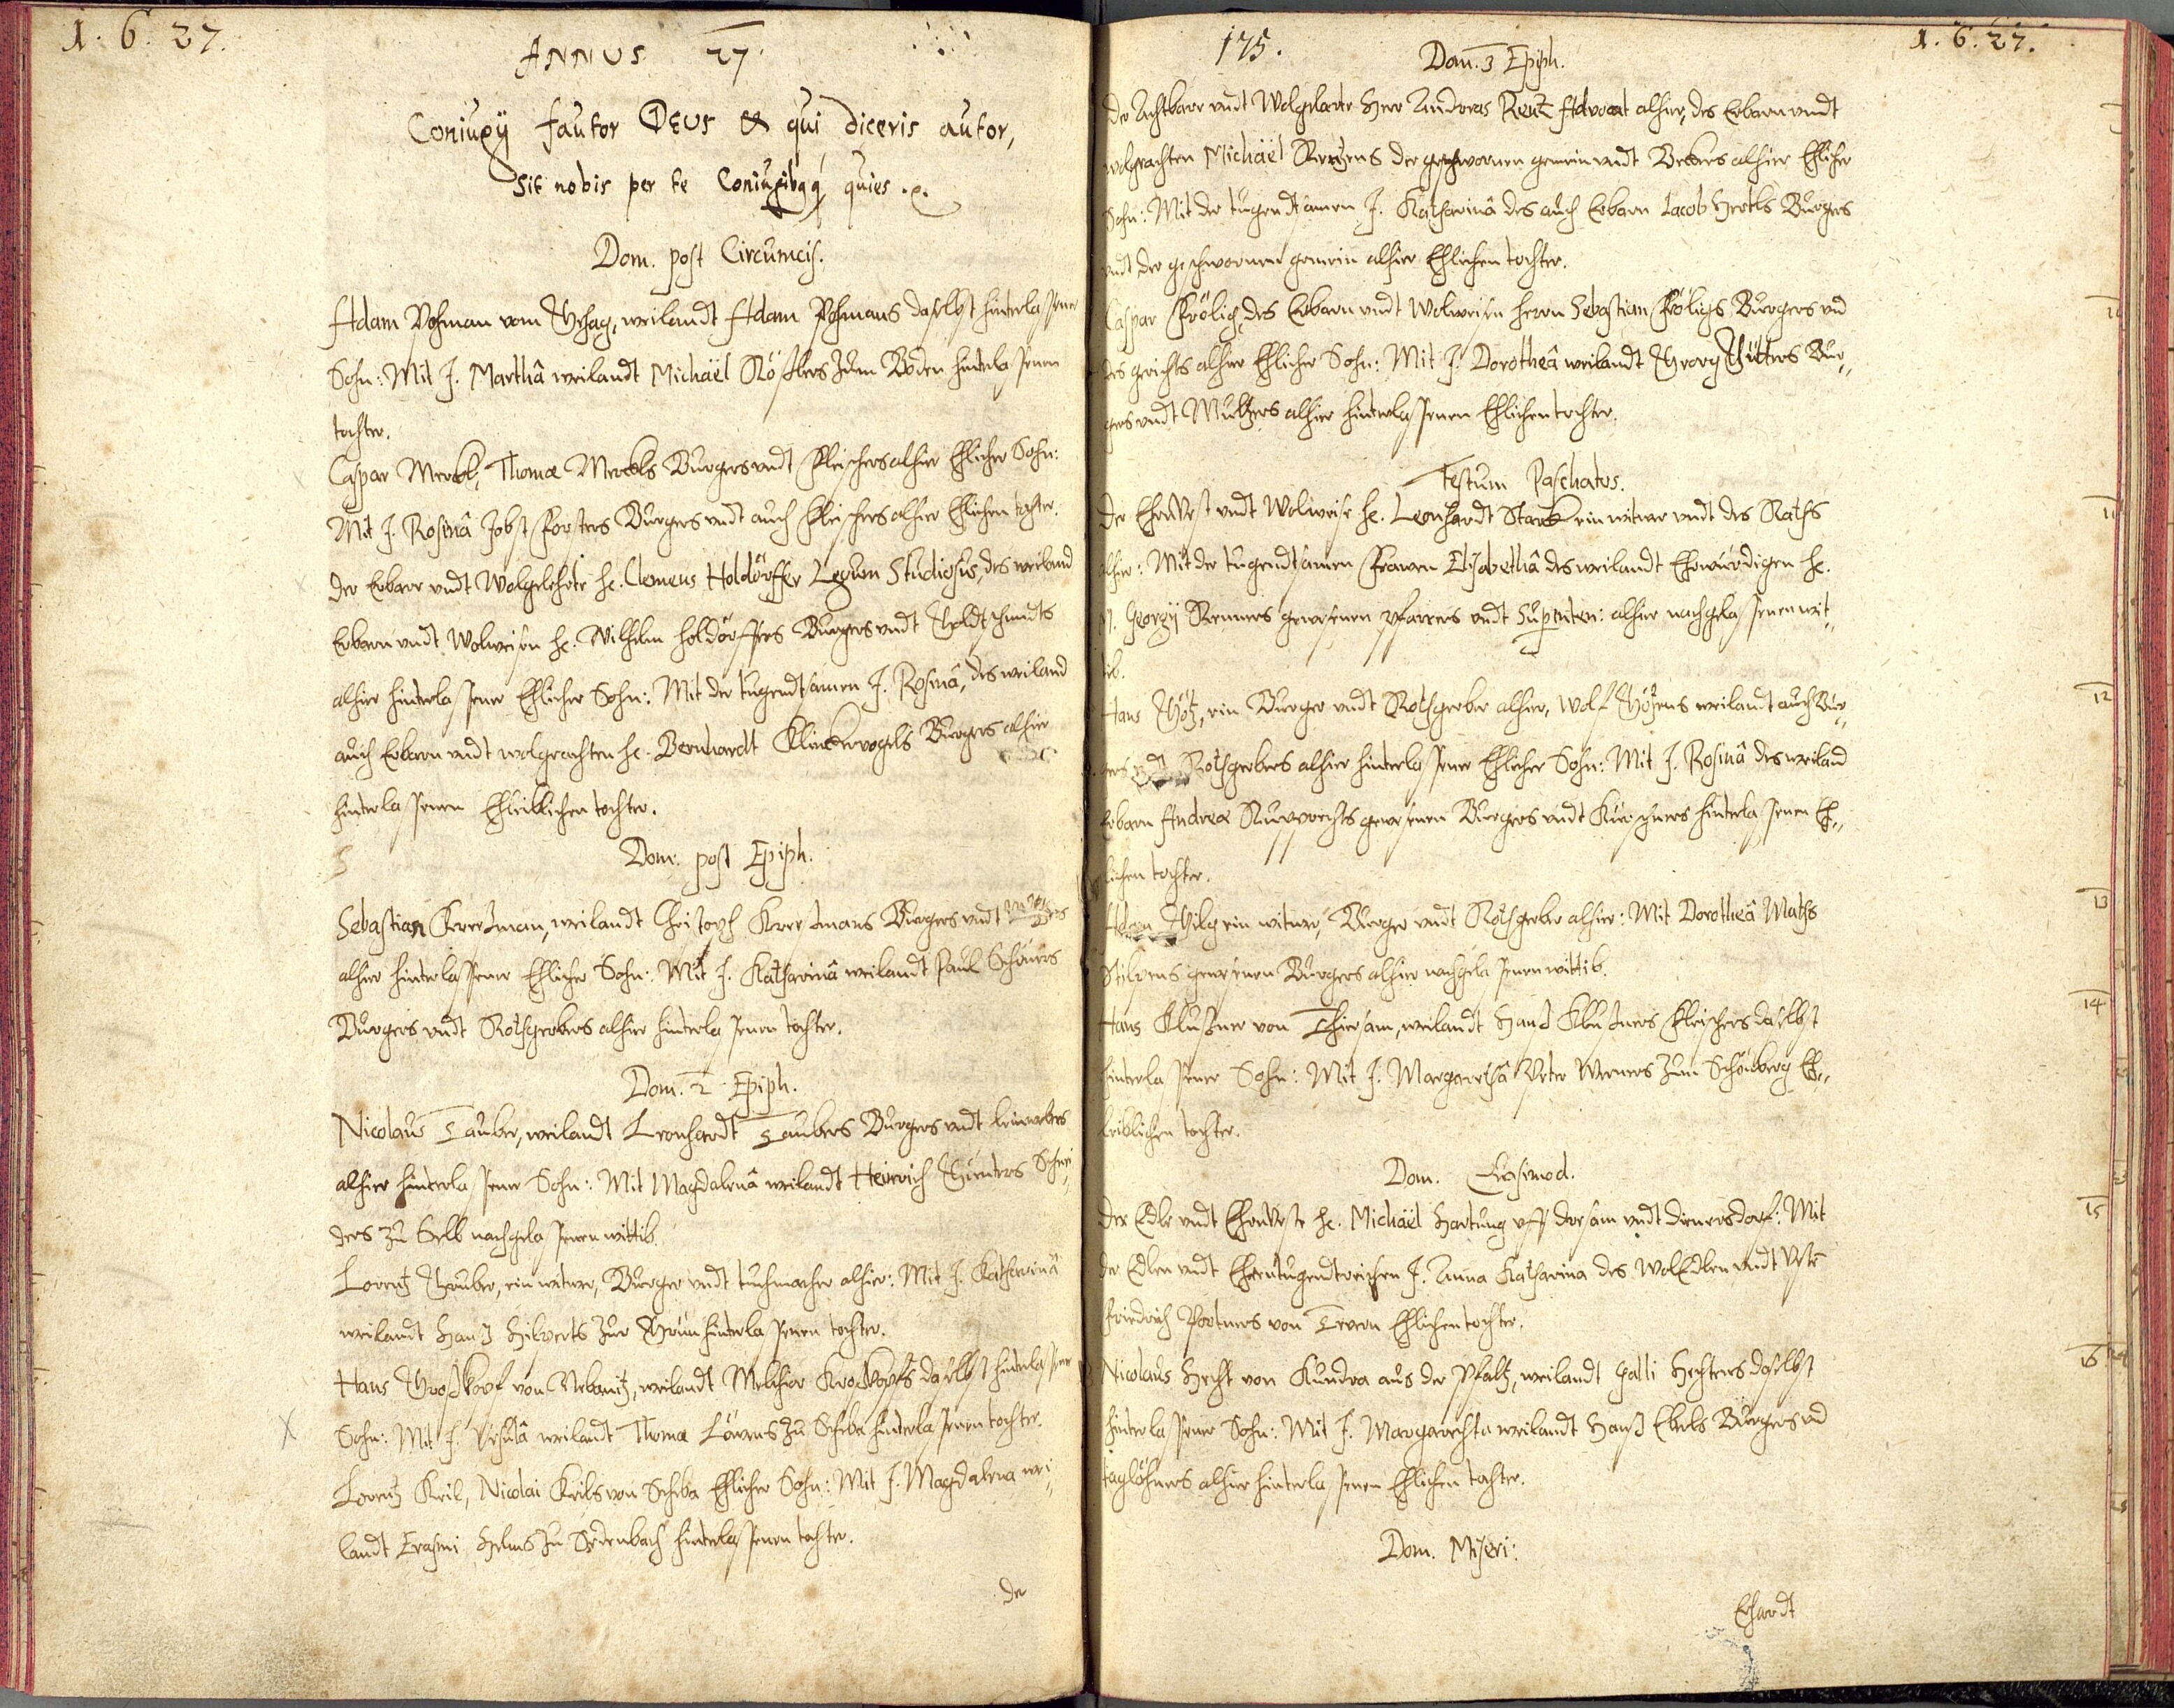 1. 6. 27.
ANNUS 27.
Coniugÿ fautor DEUS & qui diceris autor,
Sit nobis per te Coniugibqq quies.
Dom. post Circumcis.
Adam Pohman vom Hschag, weilandt Adam Pohmans daselbst hinterlassener
Sohn: Mit J. Marthâ weilandt Michaël Röstlers Zum Boden hinterlassenen
tochter.
Caspar Merckl, Thomæ Merckls Burgers undt Fleischers alhier Ehlicher Sohn:
Mit J. Rosinâ Jobst Forsters Burgers undt auch Fleischers alhier Ehlichen tochter.
Der Erbare undt Wolgelehrte H. Clemens Holdörffer Legum Studiosus, des weiland
Erbarn undt Wolweisen H. Wilhelm Holdörffers Burgers undt Goldtschmidts
alhier hinterlassener Ehlicher Sohn: Mit der tugendtsamen J. Rosinâ, des weiland
auch Erbarn undt wolgeachten H. Bernhardt Klinckervogels Burgers alhier
hinterlassenen Ehleiblichen tochter.
Dom. post Epiph.
Sebastian weilandt Christoph Burgers undt
alhier hinterlassener Ehlicher Sohn: Mit J. Katharinâ weilandt Paul Schöners
Burgers undt Rothgerbers alhier hinterlassenen tochter.
Dom. 2 Epiph.
Nicolaus Tauber, weilandt Leonhardt Taubers Burgers undt leinwebers
alhier hinterlassener Sohn: Mit Magdalenâ weilandt Heinrich Günters Schnei„
ders zu Selb nachgelassenen wittib.
Lorentz Grüber, ein witwer, Burger undt tuchmacher alhier: Mit J. Katharinâ
weilandt Hanß Hilperts Zur Grün hinterlassenen tochter.
Hans Großkopf von Nebanitz, weilandt Melchior Kroßkopfs daselbst hinterlassener
Sohn: Mit J. Ursulâ weilandt Thomæ Löwens zu Scheba hinterlassenen tochter.
Lorentz Keil, Nicolai Keils von Scheba Ehlicher Sohn: Mit J. Magdalena wei„
landt Erasmi Helms zu Sedenbach hinterlassenen tochter.
Der
175.
1. 6. 27.
Dom. 3 Epiph.
Der Achtbare undt Wolgelarte Herr Andreas Rentz Advocat alhier, des Erbarn undt
wolgeachten Michaël Rentzens der geschwornen gemein undt Beckers alhier Ehlicher
Sohn: Mit der tugendtsamen J. Katharinâ des auch Erbarn Iacob Hertels Burgers
undt der geschwornen gemein alhier Ehlichen tochter.
Caspar Frölich, des Erbarn undt Wolweisen Herrn Sebastian Frölichs Burgers und
des gerichts alhier Ehlicher Sohn: Mit J. Dorotheâ weilandt Georg Gütters Bur„
gers undt Mültzers alhier hinterlassenen Ehlichen tochter.
Festum Paschatos.
Der Ehrnvest undt Wolweise H. Leonhardt Starck ein witwer undt des Raths
alhier: Mit der tugendtsamen Frawen Elisabethâ des weilandt Ehrwürdigen H.
M. Georgÿ Renners gewesenen Pfarrers undt Superinten: alhier nachgelassenen wit„
tib.
Hans Götz, ein Burger undt Rothgerber alhier, Wolf Götzens weilandt auch Bur„
gers undt Rothgerbers alhier hinterlassener Ehlicher Sohn: Mit J. Rosinâ des weiland
Erbarn Andreæ Rupprechts gewesenen Burgers undt Kürschners hinterlassenen Eh„
lichen tochter.
Adam Hilg ein witwer, Burger undt Rothgerber alhier: Mit Dorotheâ Maths
gewesenen Burgers alhier nachgelassenen wittib.
Hans Klußner von Thiersam, weilandt Hanß Klußners Fleischers daselbst
hinterlassener Sohn: Mit J. Margarethâ Peter Werners Zum Schönberg Eh„
leiblichen tochter.
Dom. Quasimod.
Der Edle undt Ehrnveste H. Michaël Hartung uff dresam undt dienersdorf: Mit
der Edlen undt Ehrntugendtreichen J. Anna Katharina des WolEdlen undt Veste
Friedrich Portners von Tevern Ehlichen tochter.
Nicolaus Hecht von Kundra aus der Pfaltz, weilandt Galli Hechters daselbst
hinterlassener Sohn: Mit J. Margarethâ weilandt Hanß Ebels Burgers und
taglöhners alhier hinterlassenen Ehlichen tochter.
Dom. Miseri:
Erhardt
12
13
14
15
16